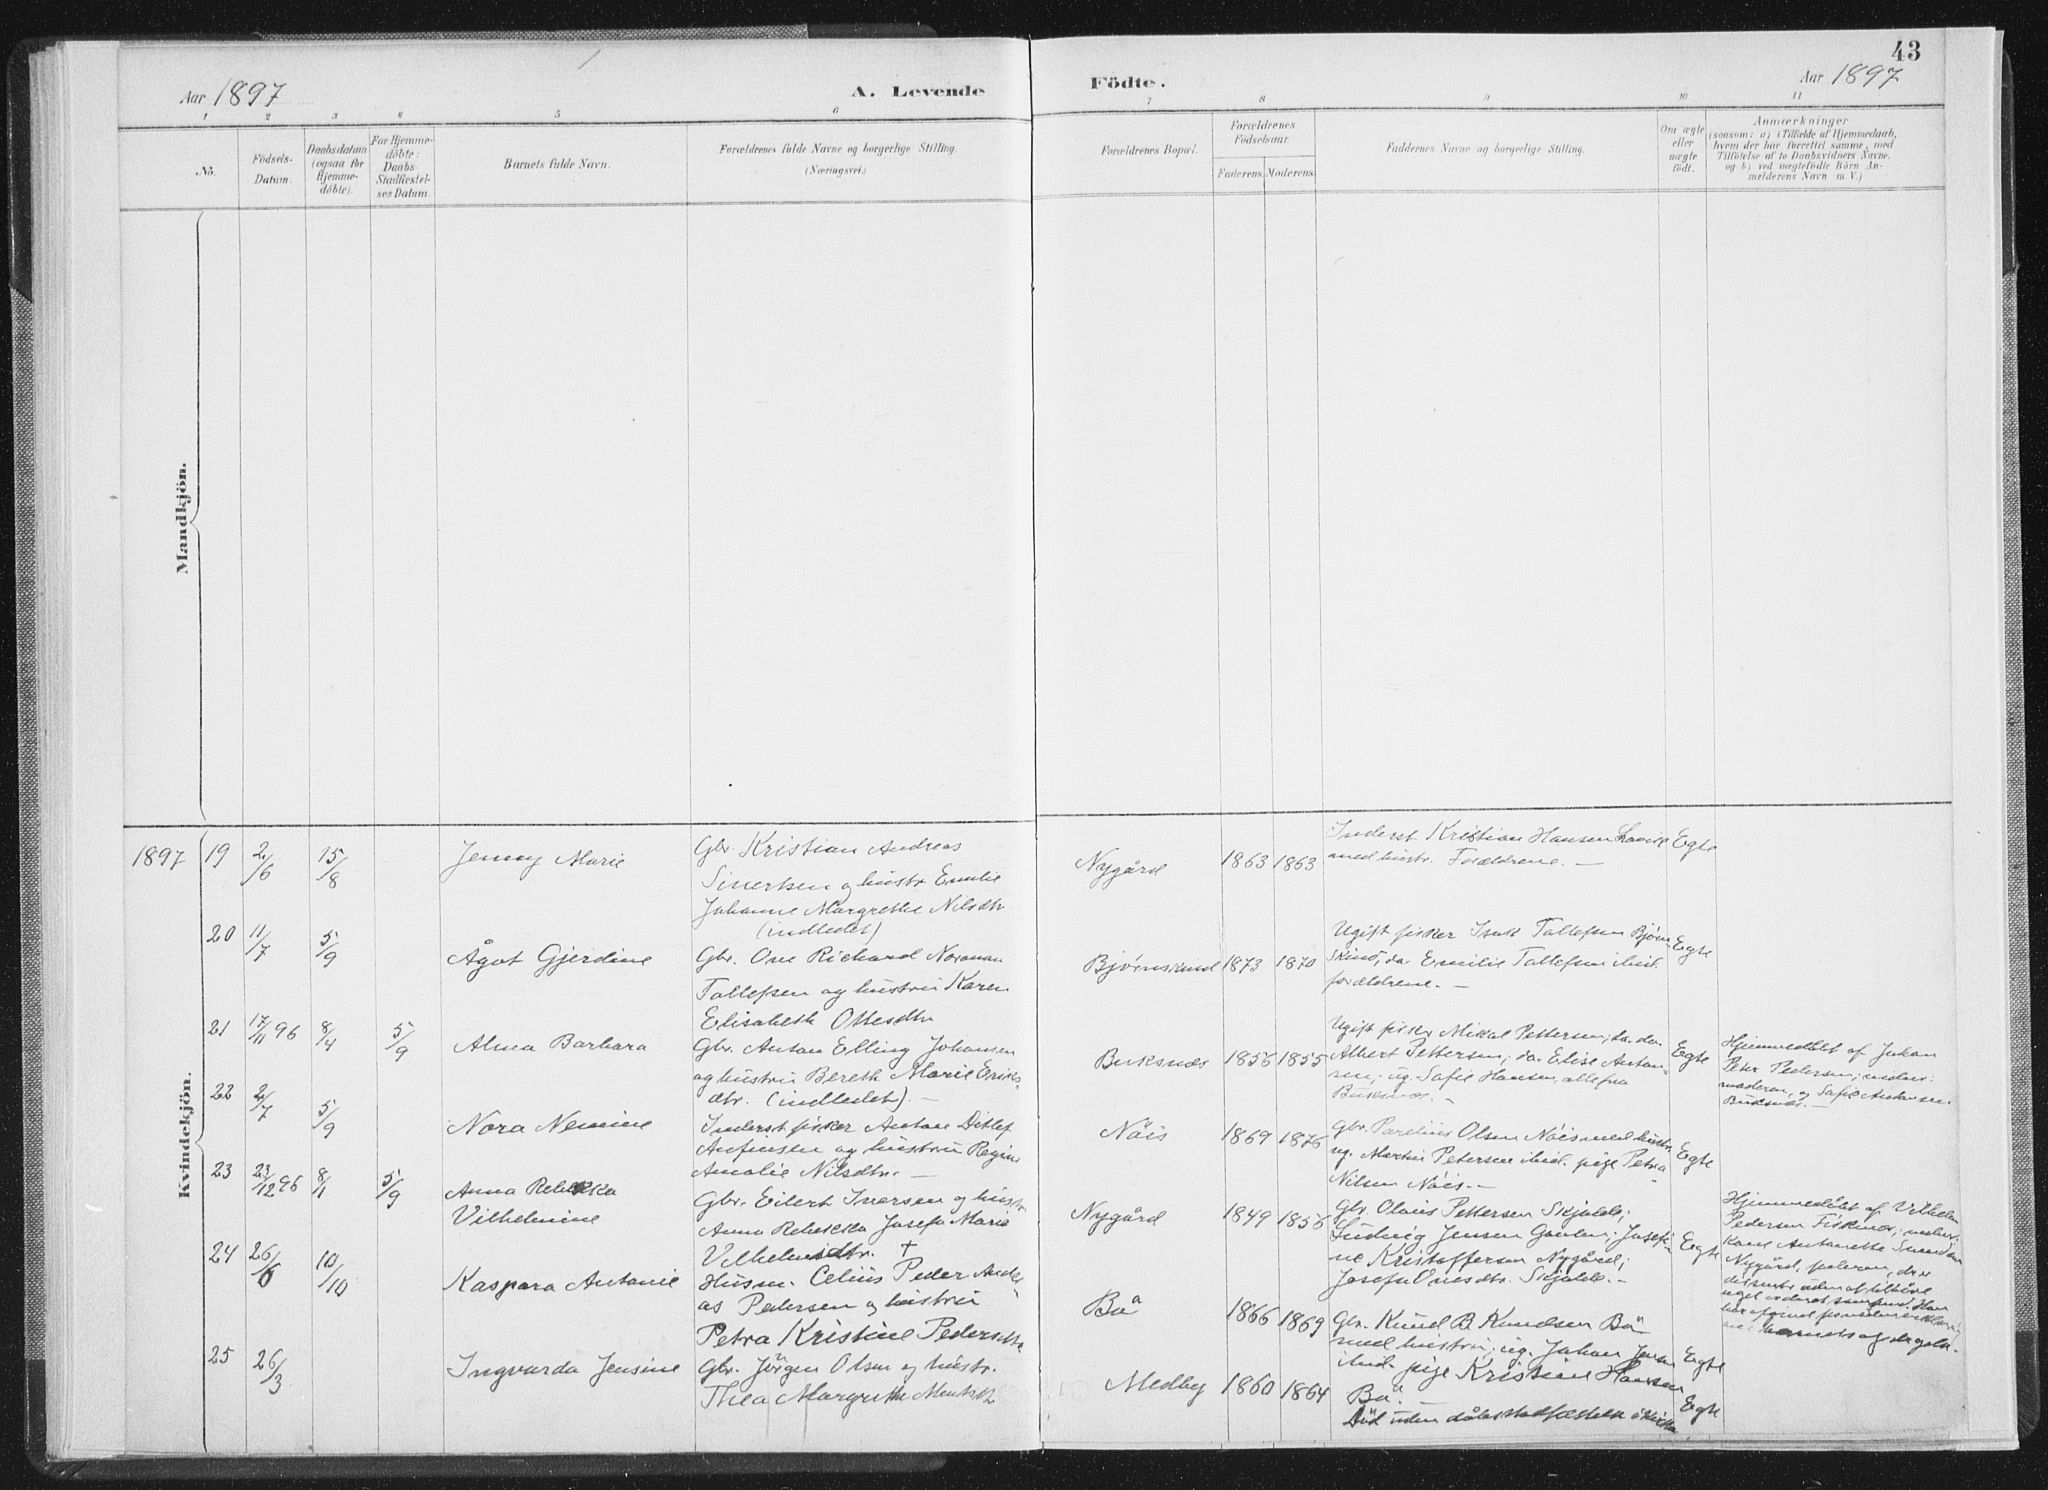 43
Aar 1897
A. Levende
Födte.
Aar 1897
1 2 3 4 5 6 7 8 9 10 11
No.
Födsels-Datum.
Daabsdatum (ogsaa för Hjemmedöbte).
For Hjemmedöbte: Daabs-Stadfæstelses Datum.
Barnets fulde Navn.
Forældrenes fulde Navne og borgerlige Stilling.
(Næringsvei.)
Forældrenes Bopæl.
Forældrenes Födselsaar.
Faderens. Moderens.
Faddernes Navne og borgerlige Stilling.
Om ægte eller uægte födt.
Anmærkninger
(saasom: a) i Tilfælde af Hjemmedaab,
hvem der har forrettet samme, med
Tilföielse af to Daabsvidners Navne.
og b) ved uægtefödte Börn An-
melderens Navn m. V.)
Mandkjön.
Kvindekjön.
1897 19 2/6 15/8 Jenny Marie
Gbr. Kristian Andreas
Sivertsen og hustr. Emilie
Johanne Margrethe Nilsdtr
(indledet)
Nygård 1863 1863
Inderst Kristian Hansen
med hustr. Forældrene. —
Egte
20 11/7 5/9 Ågot Gjerdine
Gbr. Ove Richard Norman
Tollefsen og hustru Karen
Elisabeth Ottesdtr
Bjørnskind 1873 1870
Ugift fisker Isak Tollefsen Bjørn
skind; do. Emilie Tollefsen ibid.
forældrene. —
Egte
21 17/11 96 8/4 5/9 Alma Barbara
Gbr. Anton Elling Johansen
og hustru Bereth Marie Eriks
dtr. (indledet). —
Buksnes 1856 1855
Ugift fisker Mikal Pettersen; do. do.
Albert Pettersen; do. Elise Anton-
sen; ug. Sofie Hansen, alle fra
Buksnes. —
Egte
Hjemmedøbt af Johan
Peter Pedersen; vidner:
moderen, og Sofie Antonsen
Buksnes. —
22 2/7 5/9 Nora Nemine
Inderst fisker Anton Ditlef
Anfinsen og hustru Regine
Amalie Nilsdtr. —
Nöis 1869 1876
Gbr. Parelius Olsen Nöis med hustr.
ug. Martin Petersen ibid. pige Petra
Nilsen Nöis. —
Egte
23 23/12 96 8/1 5/9 Anna Rebekka
Vilhelmine
Gbr. Eilert Iversen og hustr.
Anna Rebekka Josefa Marie
Vilhelmsdtr. †
Nygård 1849 1856
Gbr. Olaus Pettersen Skjolde;
Ludvig Jensen; Josefi-
ne Kristoffersen Nygård;
Josefa Skjolde. —
Egte
Hjemmedøbt af Vilhelm
Pedersen Fiskenes; vidner:
Kone Antonette
Nygård, faderen, der er
24 26/6 10/10 Kaspara Antonie
Husm. Celius Peder Andre
as Pedersen og hustru
Petra Kristine Pedersdtr.
Bö 1866 1869
Gbr. Knud B. Knudsen Bö
med hustru; ug. Johan Jensen
ibid. pige Kristine Hansen
Bö. —
Egte
25 26/3 Ingvarda Jensine
Gbr. Jörgen Olsen og hustr.
Thea Margrethe
Medby 1860 1864
Död uden dåbsstadfæstelse i kirken
Egte